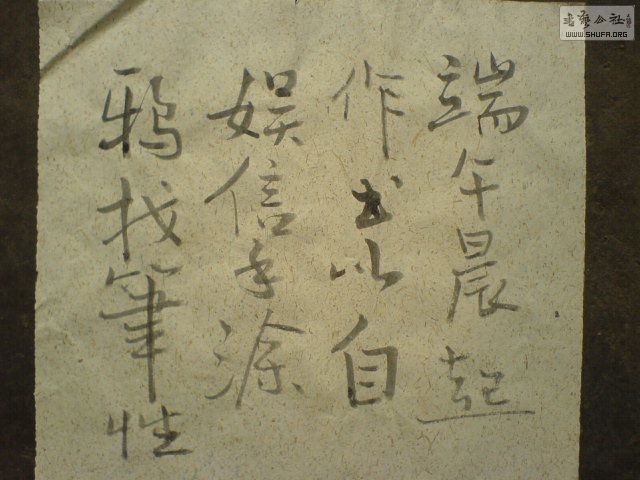 端午晨起
作书以自
娱信手涂
鸦找筆性
書藝公社
WWW.SHUFA.ORG